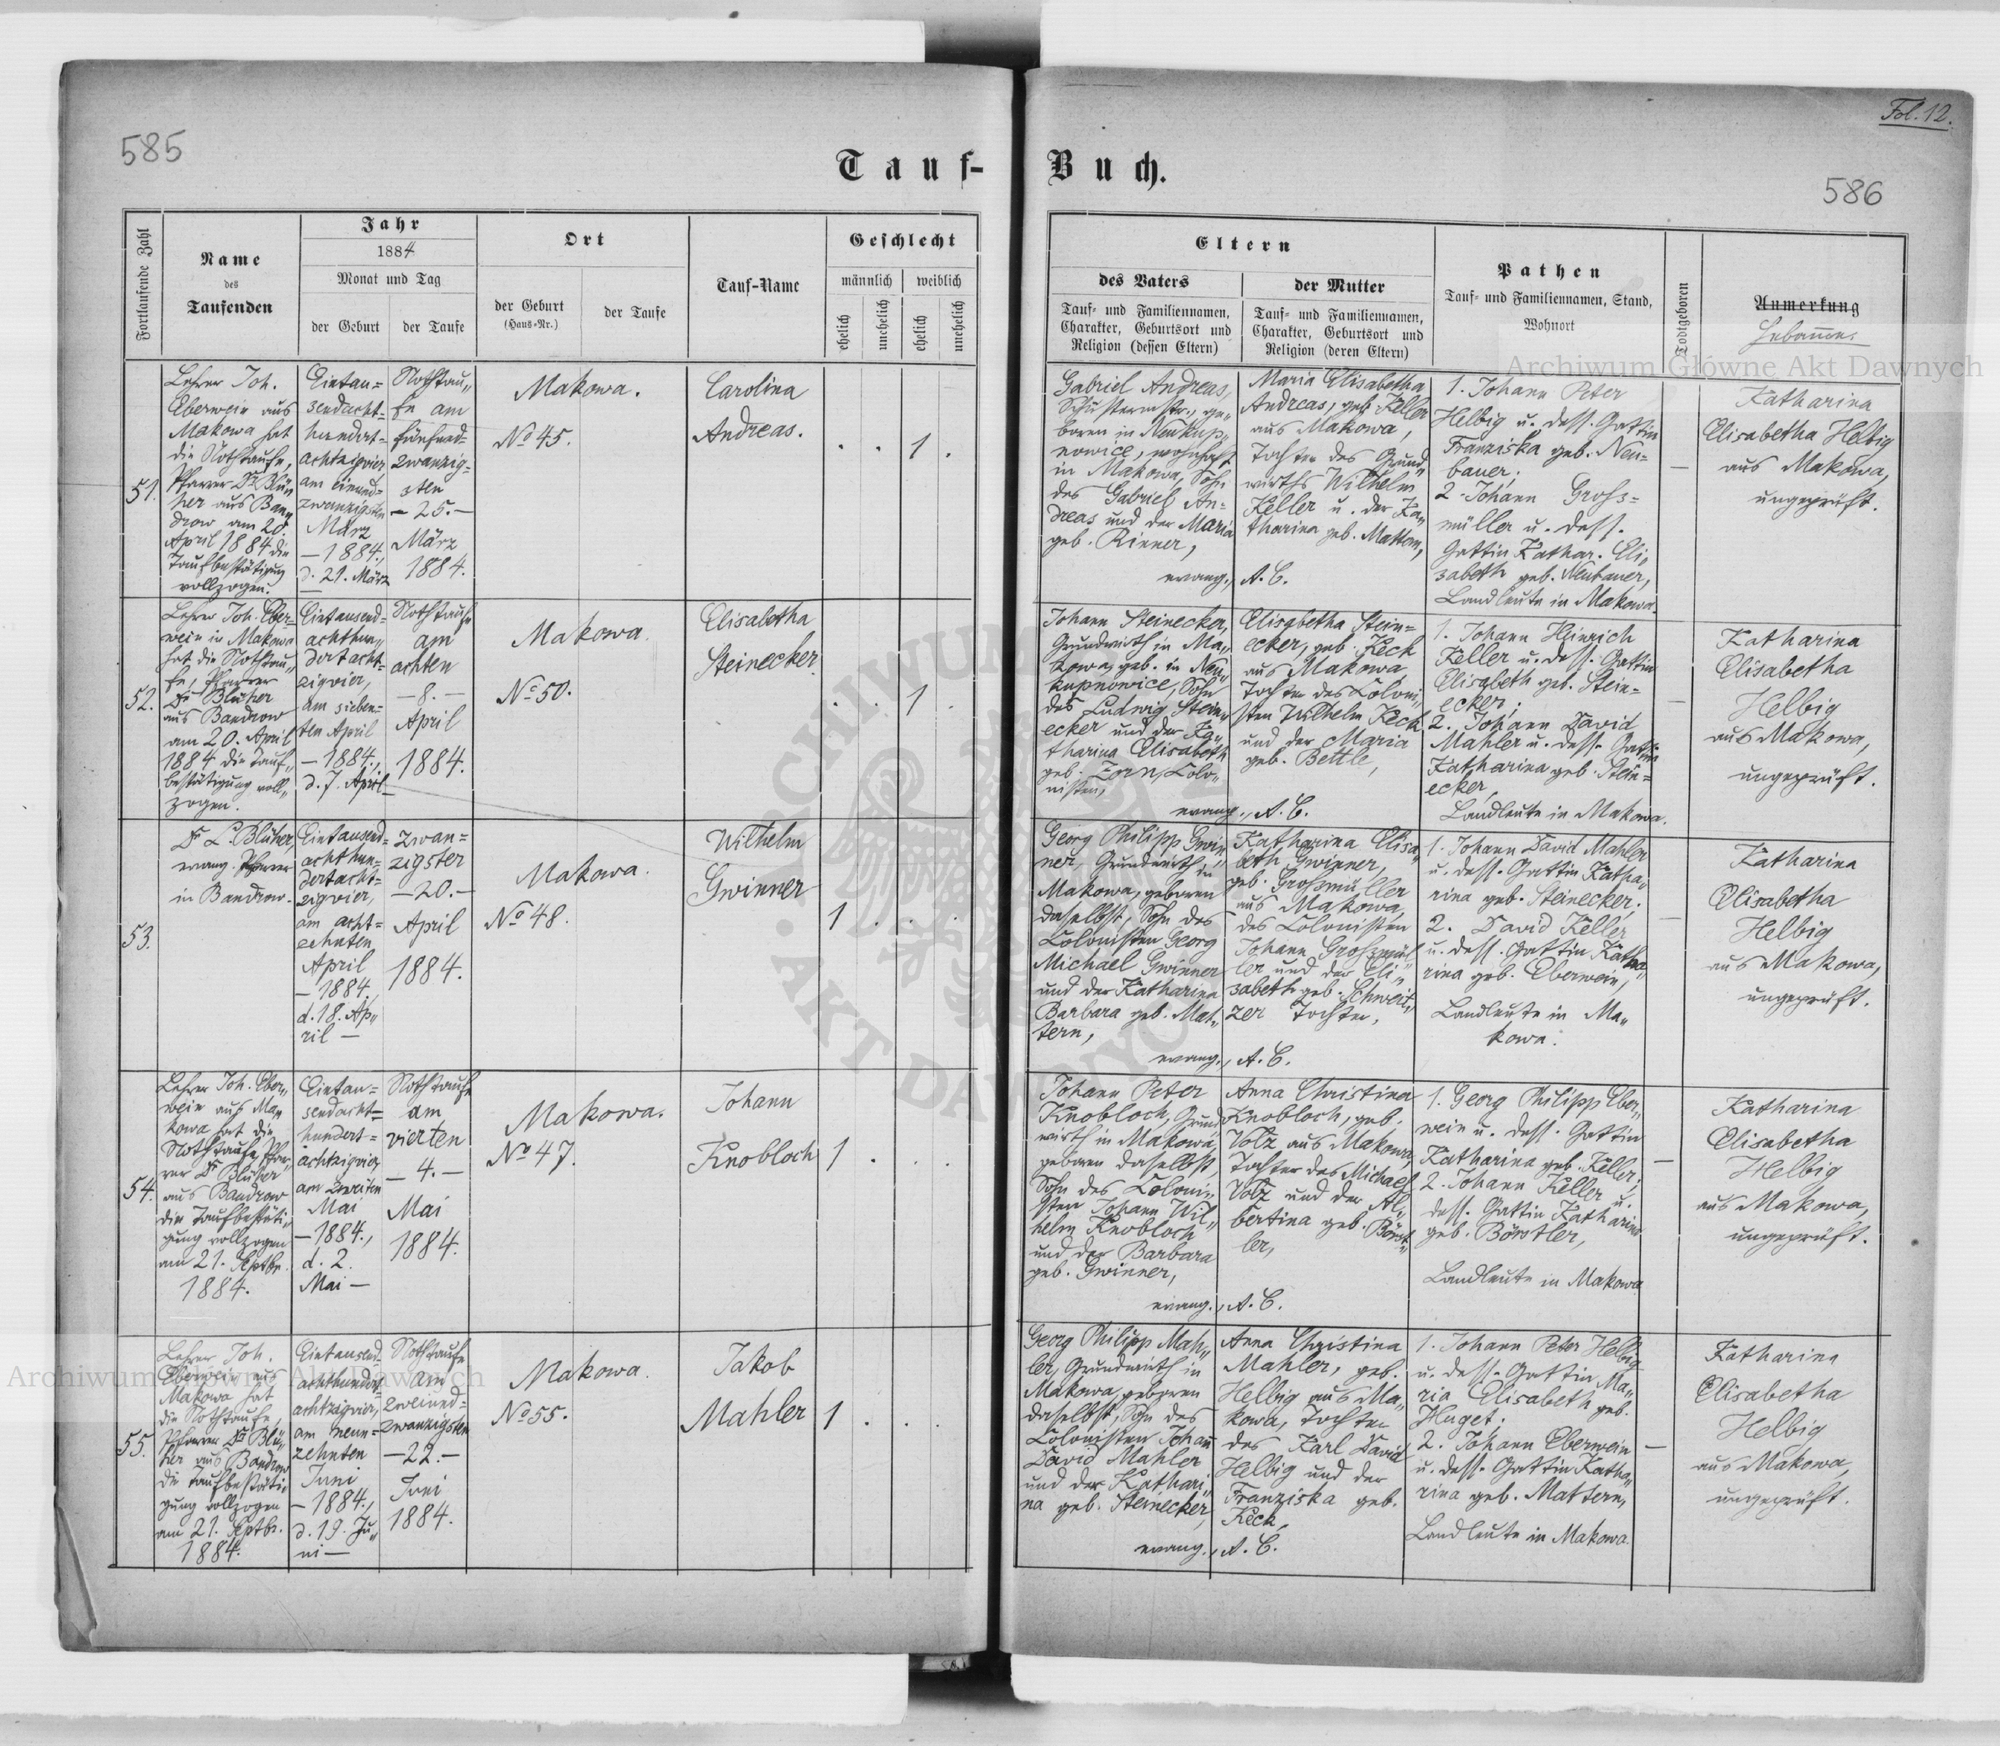 585
Fol. 12.
586
Tauf-
Buch.
Fortlaufende Zahl
Name
des
Taufenden
Jahr
1884
Monat und Tag
der Geburt
der Taufe
Ort
der Geburt
(Haus-Nr.)
der Taufe
Tauf-Name
Geschlecht
männlich
weiblich
ehelich
unehelich
ehelich
unehelich
Eltern
des Vaters
Tauf- und Familiennamen,
Charakter, Geburtsort und
Religion (dessen Eltern)
der Mutter
Tauf- und Familiennamen,
Charakter, Geburtsort und
Religion (deren Eltern)
Pathen
Tauf- und Familiennamen, Stand,
Wohnort
Todtgeboren
Anmerkung
Hebamme.
51.
Lehrer Joh.
Eberwein aus
Makowa hat
die Nothtaufe,
Pfarrer Dr Blü-
her aus Ban-
drow am 20.
April 1884 die
Taufbestätigung
vollzogen.
Eintau=
sendacht=
hundert=
achtzigvier
am einund=
zwanzigsten
März
– 1884.,
d. 21. März
Nothtau-
fe am
fünfund=
zwanzig=
sten
– 25. –
März
1884.
Makowa.
No 45.
Carolina
Andreas.
. . 1 .
Gabriel Andreas,
Schustermstr., ge-
boren in Neukup-
nowice, wohnhaft
in Makowa, Sohn
des Gabriel An-
dreas und der Maria
geb. Rinner,
evang., A. C.
Maria Elisabetha
Andreas, geb. Keller
aus Makowa,
Tochter des Grund-
wirths Wilhelm
Keller u. der Ka-
tharina geb. Mattern,
1. Johann Peter
Helbig u. dess. Gattin
Franziska geb. Neu-
bauer;
2. Johann Gross=
müller u. dess.
Gattin Kathar. Eli-
sabeth geb. Neubauer,
Landleute in Makowa.
–
Katharina
Elisabetha Helbig
aus Makowa,
ungeprüft.
52.
Lehrer Joh. Eber-
wein in Makowa
hat die Nothtau-
fe, Pfarrer
Dr Blüher
aus Bandrow
am 20. April
1884 die Tauf-
bestätigung voll-
zogen.
Eintausend=
achthun-
dertacht=
zigvier,
am sieben=
ten April
– 1884.,
d. 7. April –
Nothtaufe
am
achten
– 8. –
April
1884.
Makowa.
No 50.
Elisabetha
Steinecker.
. . 1 .
Johann Steinecker,
Grundwirth in Ma-
kowa, geb. in Neu-
kupnowice, Sohn
des Ludwig Stein-
ecker und der Ka-
tharina Elisabeth
geb. Zorn, Colo-
nisten,
evang., A. C.
Elisabetha Stein=
ecker, geb. Keck
aus Makowa,
Tochter des Coloni-
sten Wilhelm Keck
und der Maria
geb. Bettle,
1. Johann Heinrich
Keller u. dess. Gattin
Elisabeth geb. Stein=
ecker;
2. Johann David
Mahler u. dess. Gattin
Katharina geb. Stein=
ecker,
Landleute in Makowa.
–
Katharina
Elisabetha
Helbig
aus Makowa,
ungeprüft.
53.
Dr L. Blüher,
evang. Pfarrer
in Bandrow.
Eintausend=
achthun=
dertacht=
zigvier,
am acht=
zehnten
April
– 1884,
d. 18. Ap-
ril –
Zwan=
zigster
– 20. –
April
1884.
Makowa.
No 48.
Wilhelm
Gwinner
1 . . .
Georg Philipp Gwin-
ner, Grundwirth in
Makowa, geboren
daselbst, Sohn des
Colonisten Georg
Michael Gwinner
und der Katharina
Barbara geb. Mat-
tern,
evang., A. C.
Katharina Elisa-
beth Gwinner,
geb. Grossmüller
aus Makowa,
des Colonisten
Johann Grossmül-
ler und der Eli-
sabeth geb. Schweit-
zer Tochter,
1. Johann David Mahler
u. dess. Gattin Katha-
rina geb. Steinecker;
2. David Keller
u. dess. Gattin Katha-
rina geb. Eberwein,
Landleute in Ma-
kowa.
–
Katharina
Elisabetha
Helbig
aus Makowa,
ungeprüft.
54.
Lehrer Joh. Eber-
wein aus Ma-
kowa hat die
Nothtaufe, Pfar-
rer Dr Blüher
aus Bandrow
die Taufbestäti-
gung vollzogen
am 21. Septbr.
1884.
Eintau=
sendacht=
hundert=
achtzigvier
am zweiten
Mai
– 1884.,
d. 2.
Mai –
Nothtaufe
am
vierten
– 4. –
Mai
1884.
Makowa.
No 47.
Johann
Knobloch
1 . . .
Johann Peter
Knobloch, Grund-
wirth in Makowa,
geboren daselbst
Sohn des Coloni-
sten Johann Wil-
helm Knobloch
und der Barbara
geb. Gwinner,
evang., A. C.
Anna Christina
Knobloch, geb.
Volz aus Makowa,
Tochter des Michael
Volz und der Al-
bertina geb. Börst-
ler,
1. Georg Philipp Eber-
wein u. dess. Gattin
Katharina geb. Keller;
2. Johann Keller u.
dess. Gattin Katharina
geb. Börstler,
Landleute in Makowa
–
Katharina
Elisabetha
Helbig
aus Makowa,
ungeprüft.
55.
Lehrer Joh.
Eberwein aus
Makowa hat
die Nothtaufe,
Pfarrer Dr Blü-
her aus Bandrow
die Taufbestäti-
gung vollzogen
am 21. Septbr.
1884.
Eintausend=
achthundert
achtzigvier,
am neun=
zehnten
Juni
– 1884.,
d. 19. Ju-
ni –
Nothtaufe
am
zweiund=
zwanzigsten
– 22. –
Juni
1884.
Makowa.
No 55.
Jakob
Mahler
1 . . .
Georg Philipp Mah-
ler, Grundwirth in
Makowa, geboren
daselbst, Sohn des
Colonisten Johann
David Mahler
und der Kathari-
na geb. Steinecker,
evang., A. C.
Anna Christina
Mahler, geb.
Helbig aus Ma-
kowa, Tochter
des Karl David
Helbig und der
Franziska geb.
Keck,
1. Johann Peter Helbig
u. dess. Gattin Ma-
ria Elisabeth geb.
Huget;
2. Johann Eberwein
u. dess. Gattin Katha-
rina geb. Mattern,
Landleute in Makowa.
–
Katharina
Elisabetha
Helbig
aus Makowa,
ungeprüft.
Archiwum Główne Akt Dawnych
Archiwum Główne Akt Dawnych